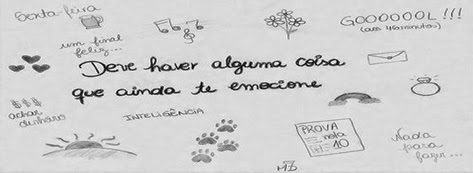 Sexta-feira
GOOOOOOL!!!
(aos 46 minutos)
um final
feliz...
Deve haver alguma coisa
que ainda te emocione
$$$
achar
dinheiro
INTELIGÊNCIA
PROVA
nota
10
Nada
para
fazer...